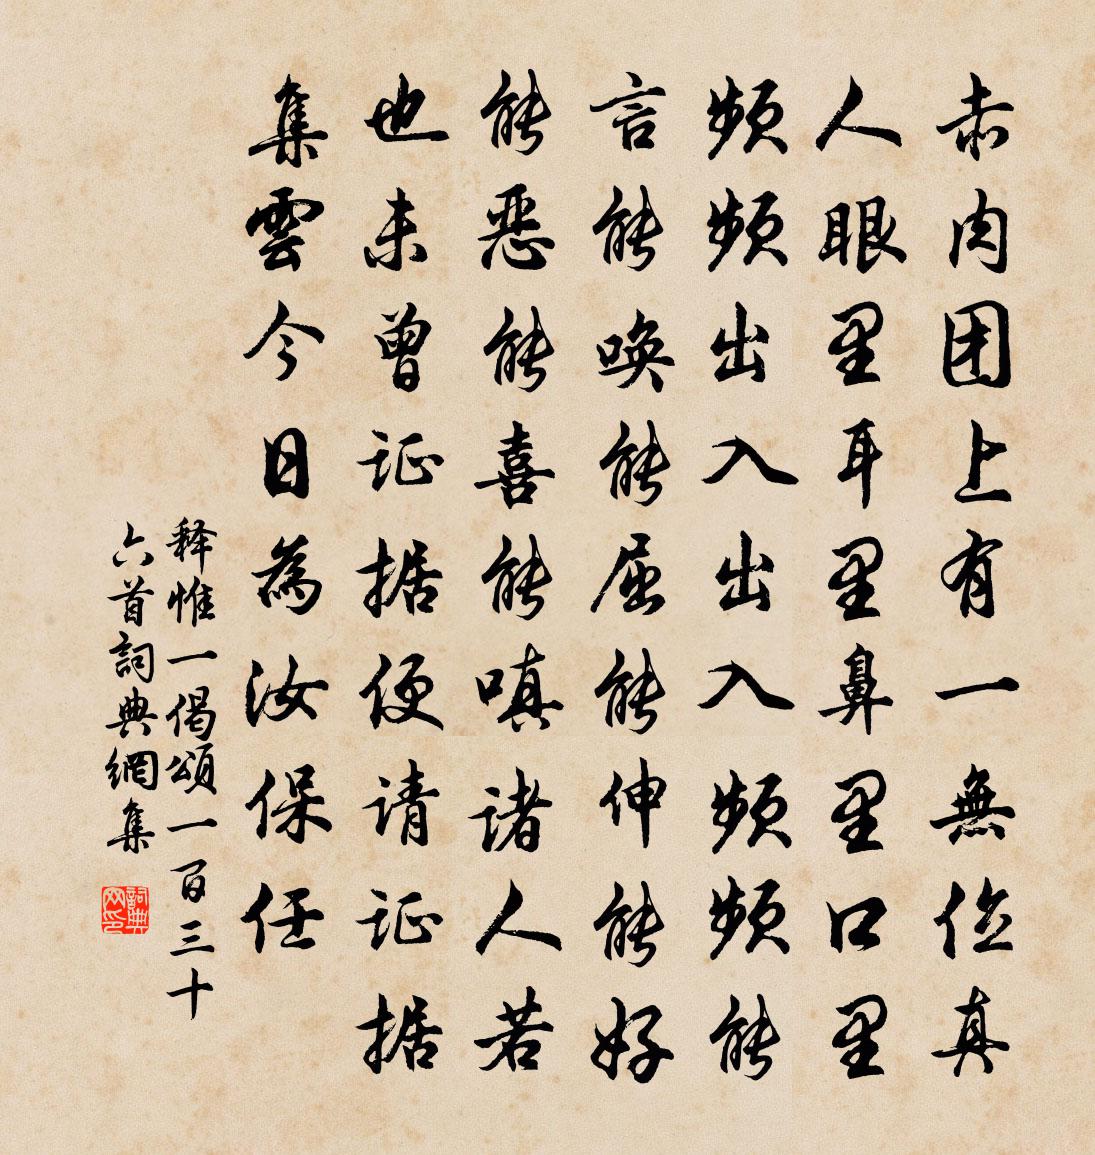 赤肉团上有一無位真
人眼里耳里鼻里口里
頻頻出入出入頻頻能
言能唤能屈能伸能好
能恶能喜能嗔諸人若
也未曾证据便请证据
集雲今日為汝保任
释惟一偈頌一百三十
六首詞典網集
詞典
网印